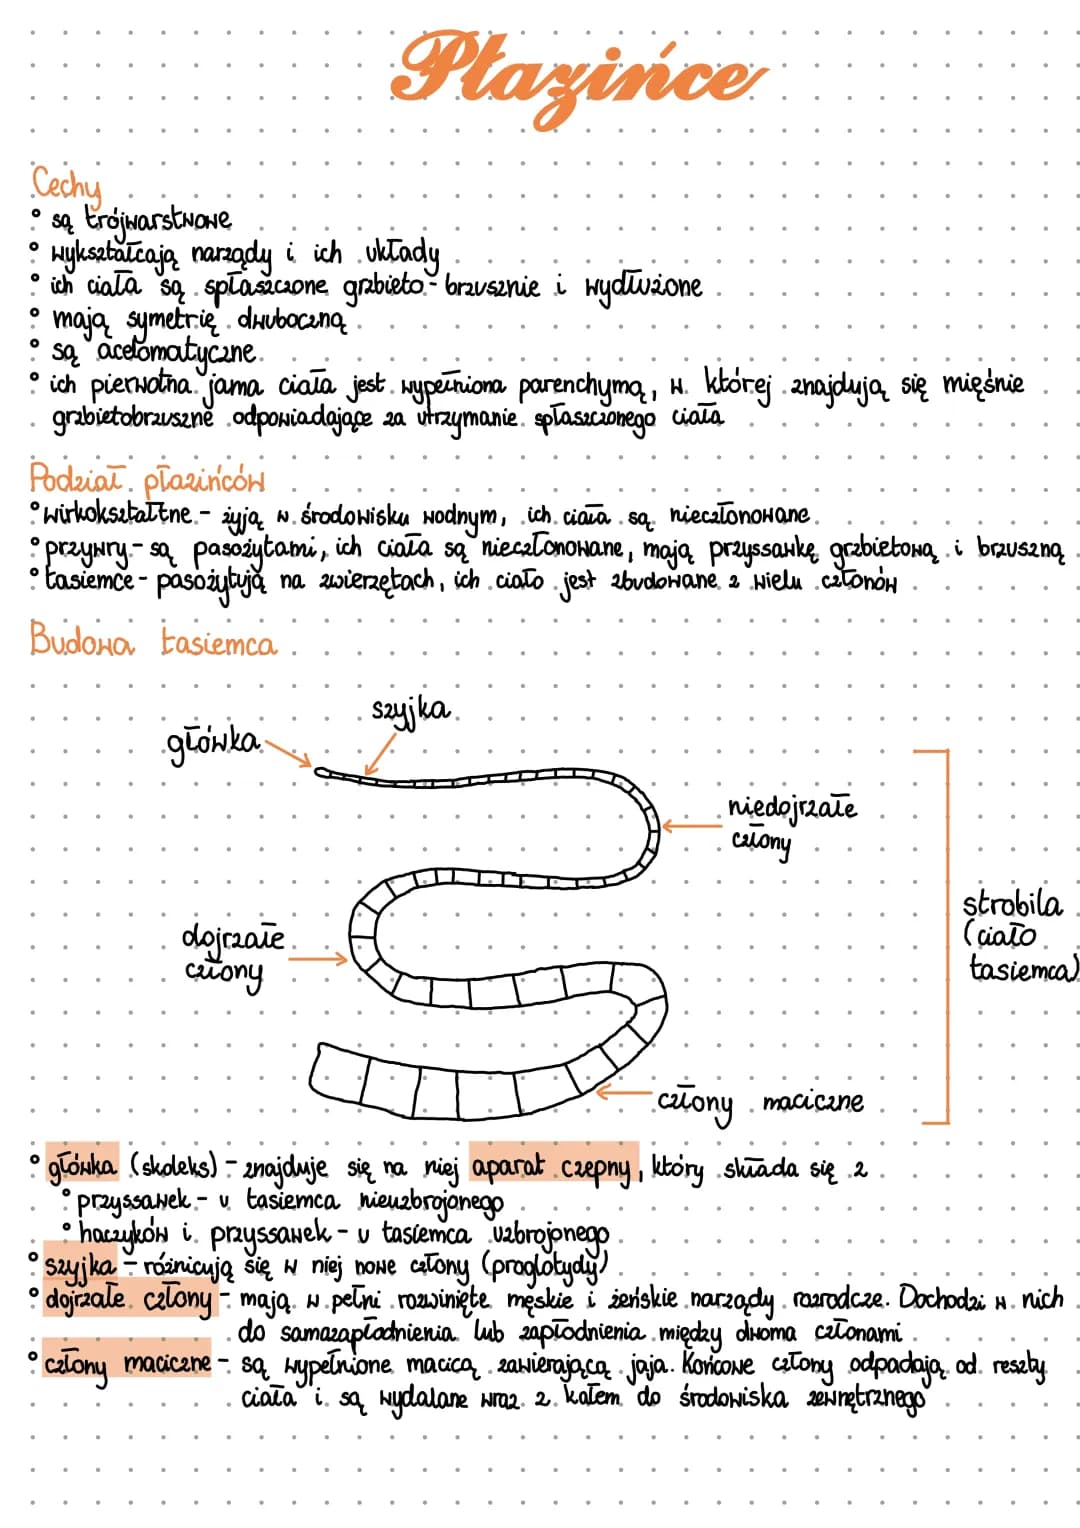 Płazińce
Cechy
° są trójwarstwowe
° wykształcają narządy i ich układy
° ich ciała są spłaszczone grzbieto-brzusznie i wydłużone
° mają symetrię dwuboczną
° są acelomatyczne
° ich pierwotna jama ciała jest wypełniona parenchymą, w której znajdują się mięśnie
grzbietobrzuszne odpowiadające za utrzymanie spłaszczonego ciała
Podział płazińców
° wirkokształtne - żyją w środowisku wodnym, ich ciała są nieczłonowane
° przywry - są pasożytami, ich ciała są nieczłonowane, mają przyssawkę grzbietową i brzuszną
° tasiemce - pasożytują na zwierzętach, ich ciało jest zbudowane z wielu członów
Budowa tasiemca
szyjka
główka
niedojrzałe
człony
strobila
(ciało
tasiemca)
dojrzałe
człony
człony maciczne
° główka (skoleks) - znajduje się na niej aparat czepny, który składa się z
° przyssawek - u tasiemca nieuzbrojonego
° haczyków i przyssawek - u tasiemca uzbrojonego
° szyjka - różnicują się w niej nowe człony (proglotydy)
° dojrzałe człony - mają w pełni rozwinięte męskie i żeńskie narządy rozrodcze. Dochodzi w nich
do samozapłodnienia lub zapłodnienia między dwoma członami
° człony maciczne - są wypełnione macicą zawierającą jaja. Końcowe człony odpadają od reszty
ciała i są wydalane wraz z kałem do środowiska zewnętrznego